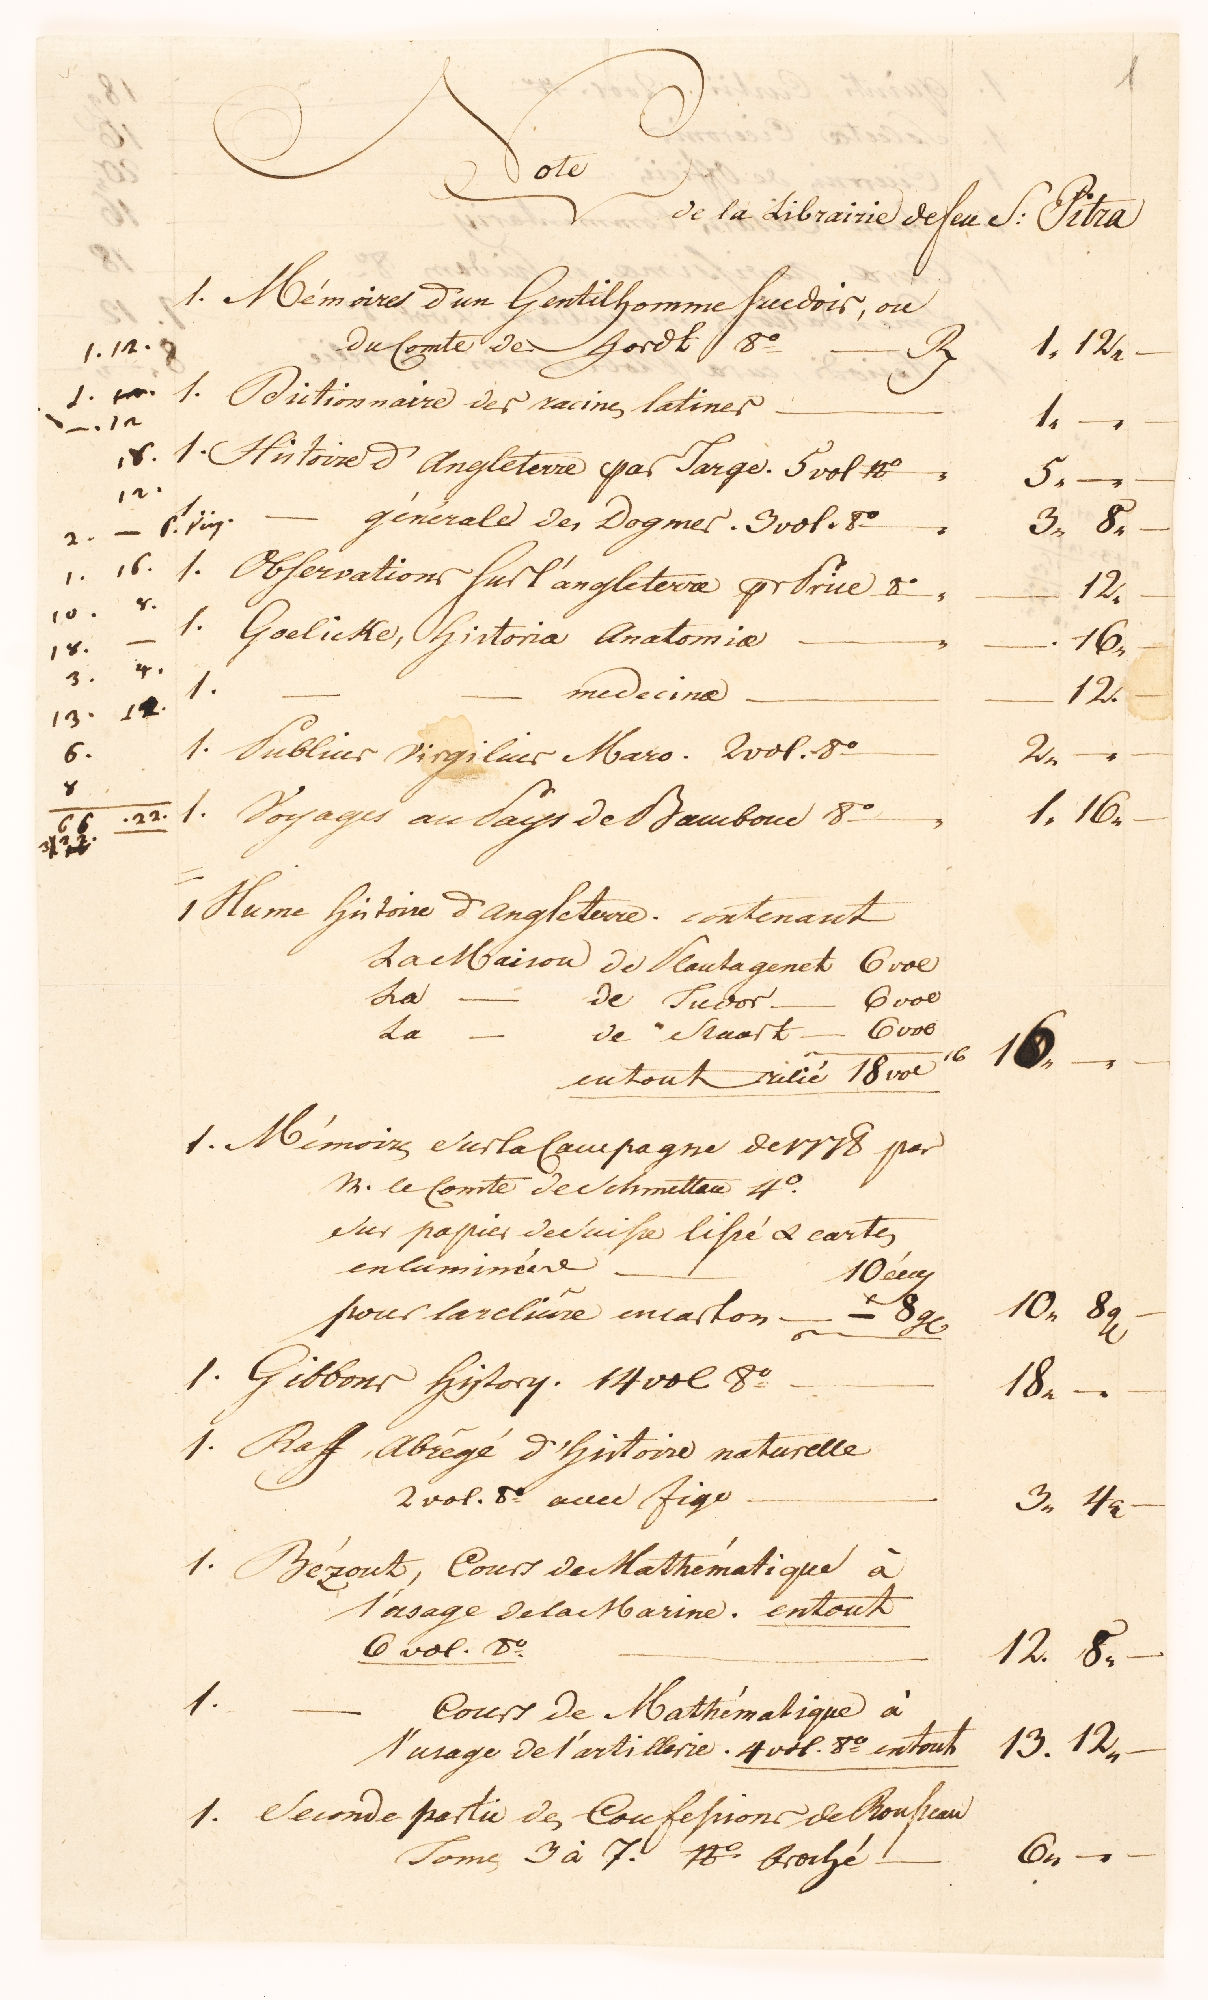 1
Note
de la Librairie de feu S: Pitra
1. Mémoires d'un Gentilhomme suedois, ou
du Comte de Hordt 8o — R 1. 12 —
1. Dictionnaire des racines latines — 1. — —
1. Histoire d'Angleterre par Targe. 5 vol 12o 5. — —
1. — générale des Dogmes. 3 vol. 8o 3. 8. —
1. Observations sur l'angleterre pr Price 8o — 12. —
1. Goelicke, historia Anatomiæ — — 16. —
1. — — medecinæ — — 12. —
1. Publius Virgilius Maro. 2 vol. 8o — 2. — —
1. Voyages au Pays de Bambouc 8o — 1. 16. —
1 Hume histoire d'angleterre. contenant
La Maison de Plantagenet 6 vol
La — de Tudor — 6 vol
La — de Stuart — 6 vol
en tout relié 18 vol 16 16. — —
1. Mémoires sur la Campagne de 1778 par
M. le Comte de Schmettau 4o.
sur papier de Suisse lissé & cartes
enluminées — 10 écus
pour la reliûre en carton — — 8 g 10. 8 g —
1. Gibbons history. 14 vol 8o — 18. — —
1. Raff, Abrégé d'histoire naturelle
2 vol. 8o avec figs — 3. 4 —
1. Bézout, Cours de Mathématique à
l'usage de la Marine. en tout
6 vol. 8o. — 12. 8. —
1. — Cours de Mathématique à
l'usage de l'artillerie. 4 vol. 8o en tout 13. 12. —
1. Seconde partie des Confessions de Rousseau
Tomes 3 à 7. 12o. broché — 6. — —
1. 12.
1.
—. 12
18.
12.
2. —
1. 16.
10. 8.
18. —
3. 4.
13. 12.
6.
8
66 .22.